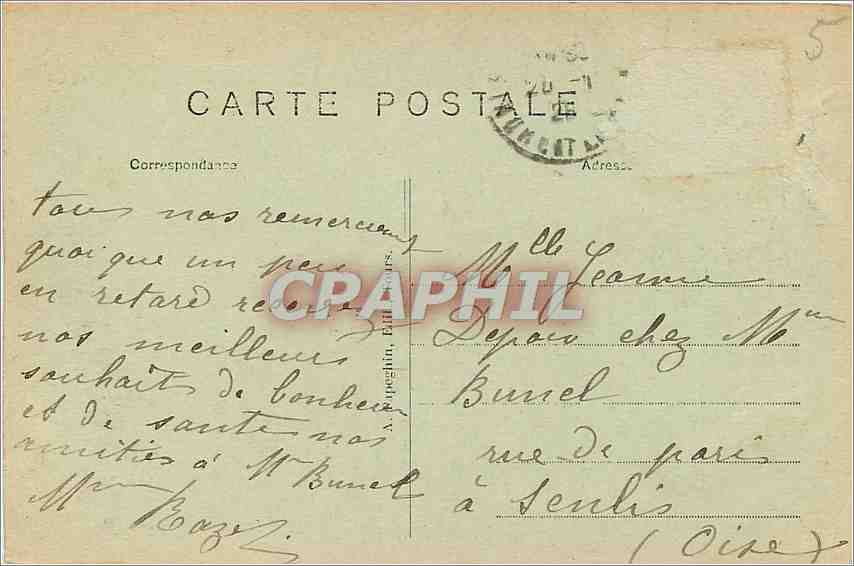 5
CARTE POSTALE
20 -1
Correspondance
Adresse
tous nos remerciements
quoi que un peu
en retard recevez
nos meilleurs
souhaits de bonheur
et de sante nos
amitiés à Mr Bunel
Mme
Raze
Edit. Tours.
CPARHIL
Mlle Jeanne
chez Mme
Bunel
rue de paris
à Senlis
(Oise)